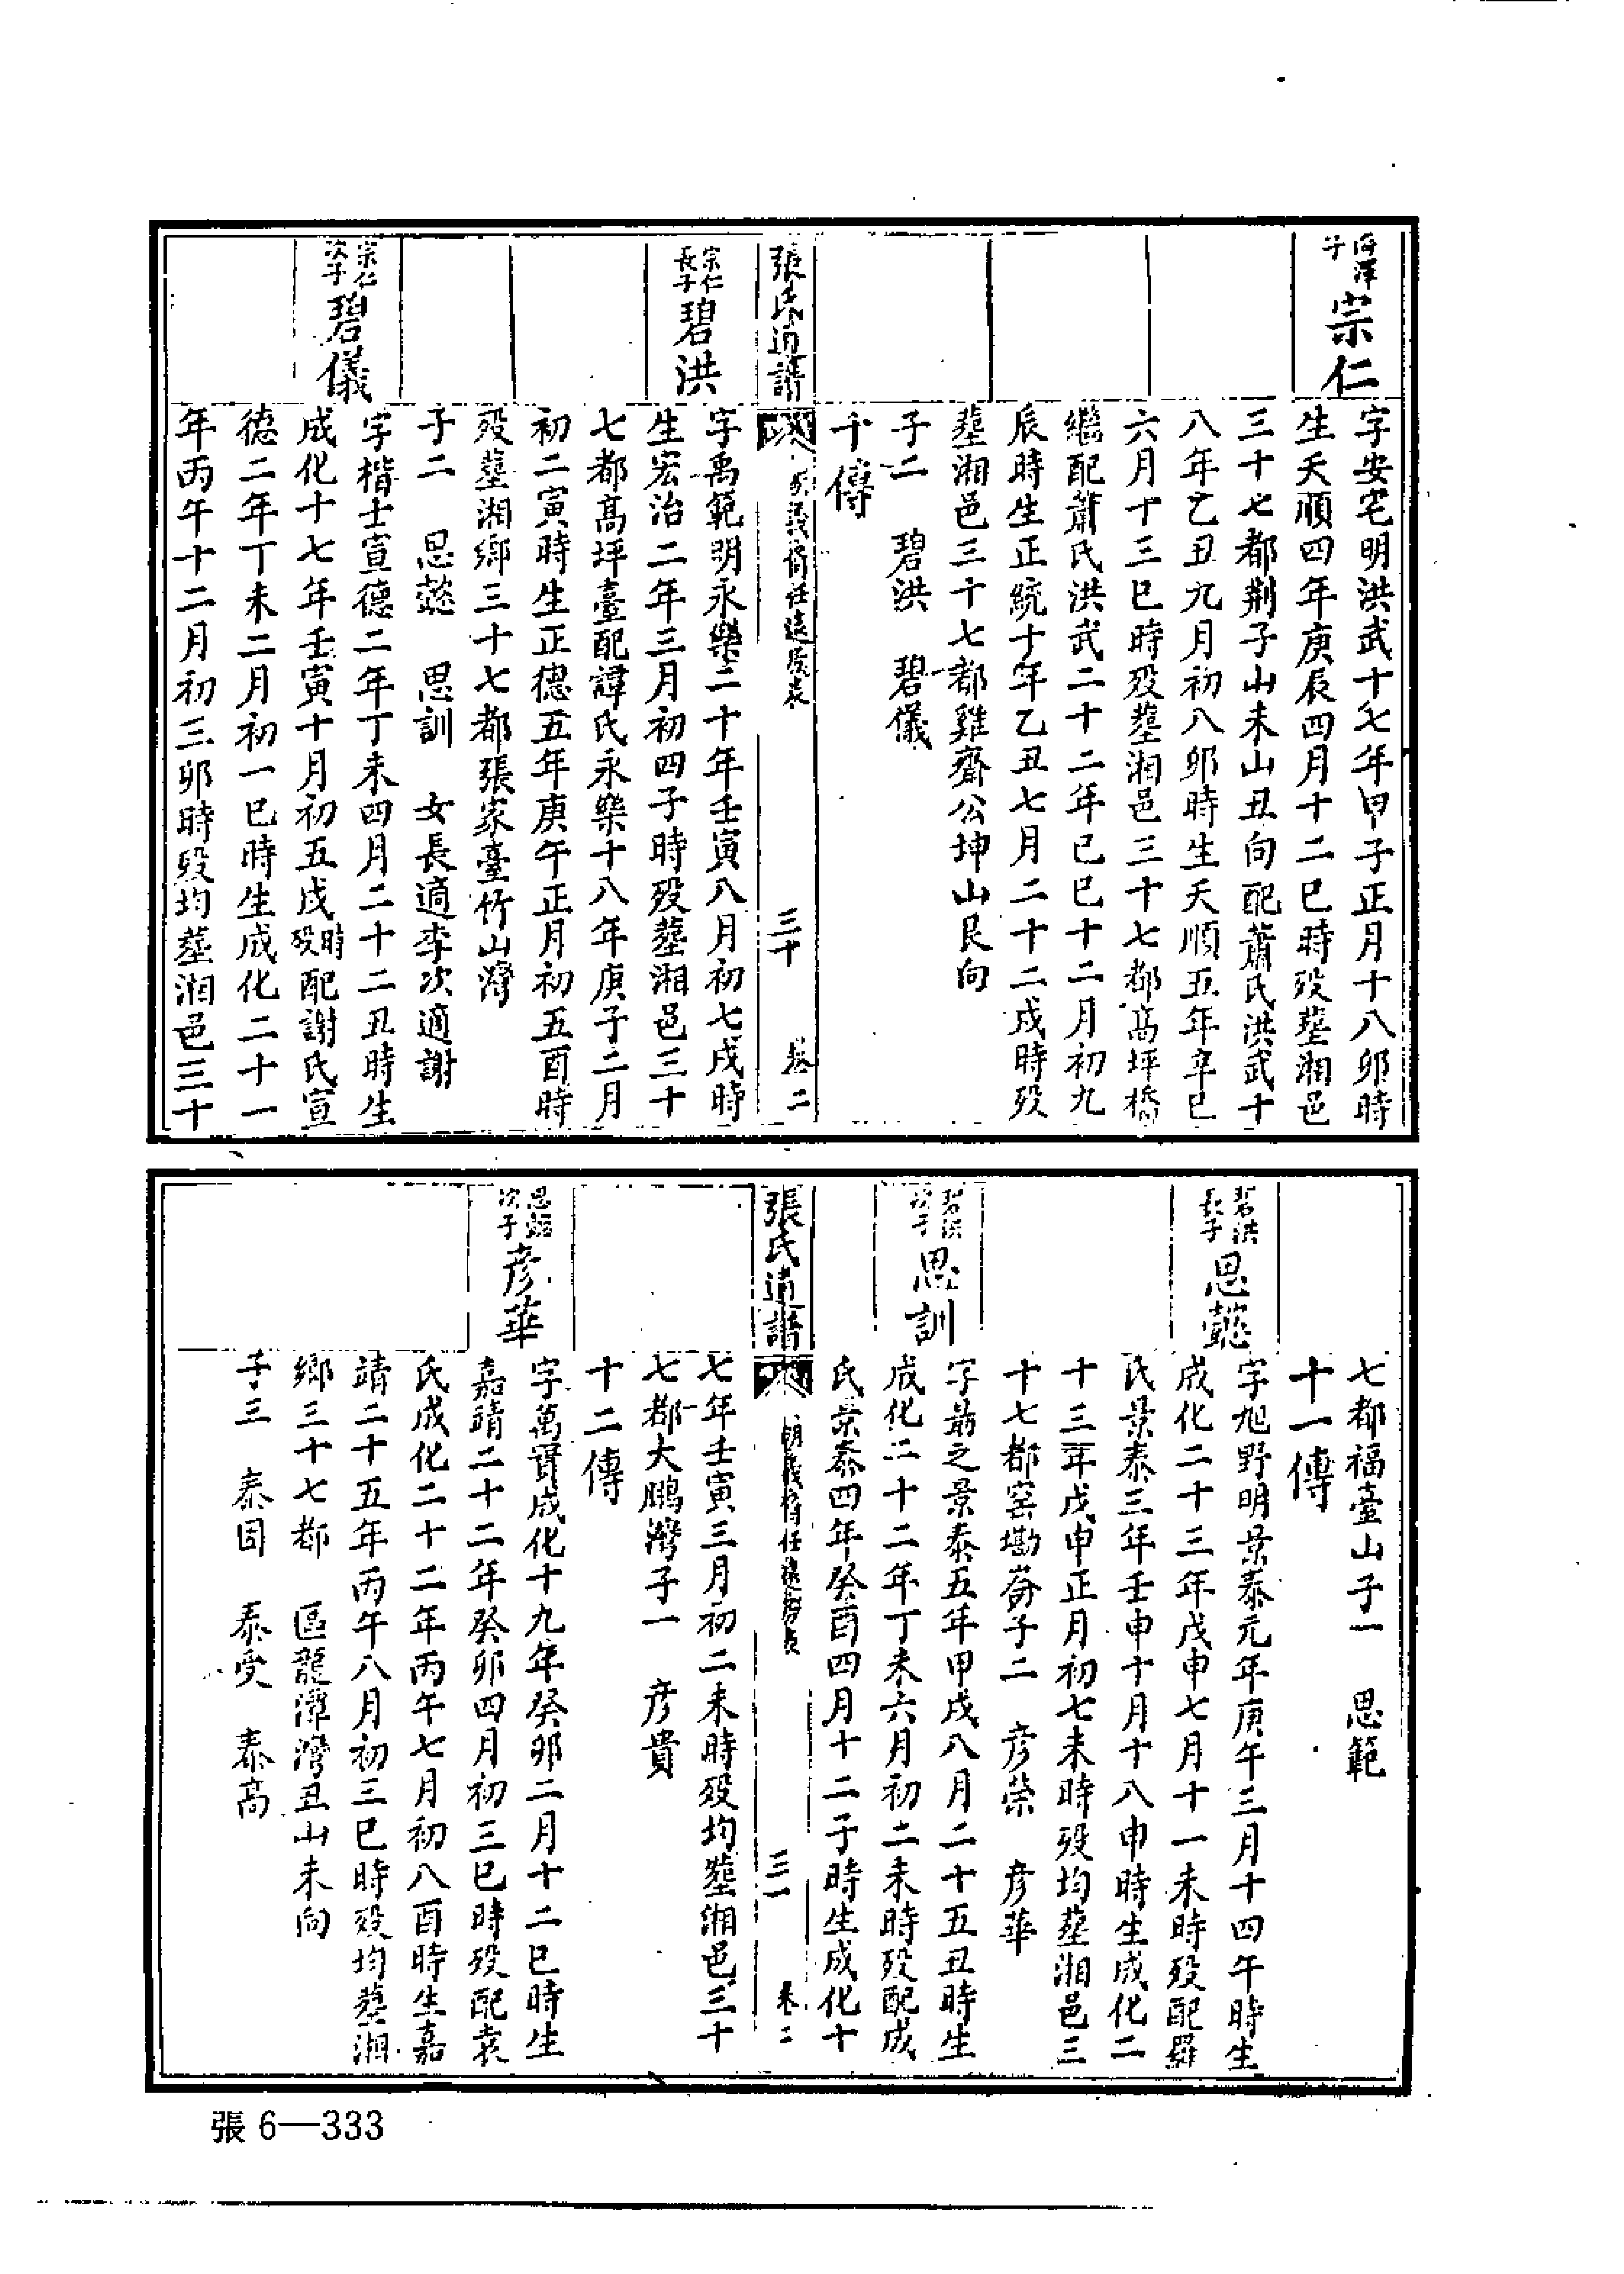 子
宗仁
字安宅明洪武十七年甲子正月十八卯時
生天順四年庚辰四月十二巳時歿塟湘邑
三十七都荆子山未山丑向配蕭氏洪武十
八年乙丑九月初八卯時生天順五年辛巳
六月十三巳時歿塟湘邑三十七都高坪橋
繼配蕭氏洪武二十二年己巳十二月初九
辰時生正統十年乙丑七月二十二戌時歿
塟湘邑三十七都雞齋公坤山艮向
子二 碧洪 碧儀
十傳
張氏通譜
三十 卷二
宗仁
長子
碧洪
字禹範明永樂二十年壬寅八月初七戌時
生宏治二年三月初四子時歿塟湘邑三十
七都高坪臺配譚氏永樂十八年庚子二月
初二寅時生正德五年庚午正月初五酉時
歿塟湘鄉三十七都張家臺竹山灣
子二 思懿 思訓 女長適李次適謝
宗仁
次子
碧儀
字楷士宣德二年丁未四月二十二丑時生
成化十七年壬寅十月初五戌時歿配謝氏宣
德二年丁未二月初一巳時生成化二十一
年丙午十二月初三卯時歿均塟湘邑三十
七都福臺山子一 思範
十一傳
碧洪
長子
思懿
字旭野明景泰元年庚午三月十四午時生
成化二十三年戊申七月十一未時歿配羅
氏景泰三年壬申十月十八申時生成化二
十三年戊申正月初七未時歿均塟湘邑三
十七都窑塝崙子二 彦荣 彦華
碧洪
次子
思訓
字勗之景泰五年甲戌八月二十五丑時生
成化二十二年丁未六月初二未時歿配成
氏景泰四年癸酉四月十二子時生成化十
張氏通譜
三一 卷二
七年壬寅三月初二未時歿均塟湘邑三十
七都大鵬灣子一 彦貴
十二傳
思懿
次子
彦華
字萬實成化十九年癸卯二月十二巳時生
嘉靖二十二年癸卯四月初三巳時歿配袁
氏成化二十二年丙午七月初八酉時生嘉
靖二十五年丙午八月初三巳時歿均塟湘
鄉三十七都 區龍潭灣丑山未向
子三 泰因 泰受 泰高
張 6—333